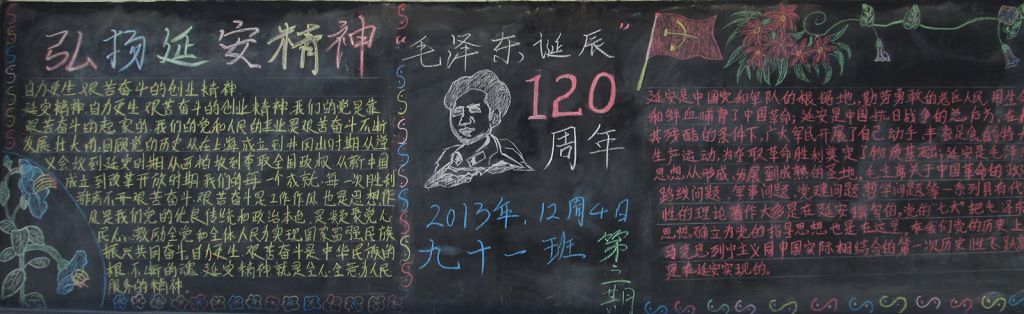 弘扬延安精神
自力更生、艰苦奋斗的创业精神.
延安精神自力更生、艰苦奋斗的创业精神.我们的党是靠
艰苦奋斗的起家的,我们的党和人民的事业是艰苦奋斗不断
发展壮大的.回顾党的历史从在上海成立到井冈山时期从遵
义会议到延安时期从西柏坡到夺取全国政权,从新中国
成立到改革开放时期我们的每一个成就,每一次胜利
都离不开艰苦奋斗.艰苦奋斗是工作作风也是思想作
风是我们党的优良传统和政治本色,是凝聚党心
民心、激励全党和全体人民为实现国家富强民族
振兴共同奋斗.自力更生、艰苦奋斗是中华民族的
根.延安精神就是全心全意为人民
服务的精神.
“毛泽东诞辰”
120
周年
2013年,12周4日
九十一班
第二期
延安是中国党和军队的根据地,勤劳勇敢的老区人民,用生
和鲜血哺育了中国革命;延安是中国抗日战争的总后方,在
其残酷的条件下,广大军民开展了自己动手、丰衣足食的特大
生产运动,为夺取革命胜利奠定了物质基础;延安是毛泽
思想从形成、发展到成熟的圣地。毛主席关于中国革命的政
路线问题、军事问题、党建问题、哲学问题等一系列具有代
性的理论著作大多是在延安撰写的,党的“七大”把毛泽
思想确立为党的指导思想也是在这里.在我们党的历史上
马克思、列宁主义同中国实际相结合的第一次历史性飞跃
是在延安实现的。